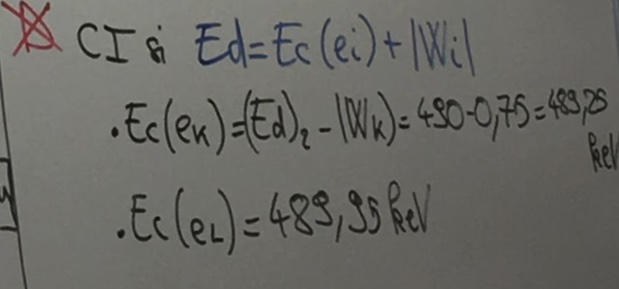 CI si Ed=Ec(ei)+|Wi|
.Ec(eK)=(Ed)2-|WK)=490-0,75=489,25
keV
.Ec(eL)=489,95 keV